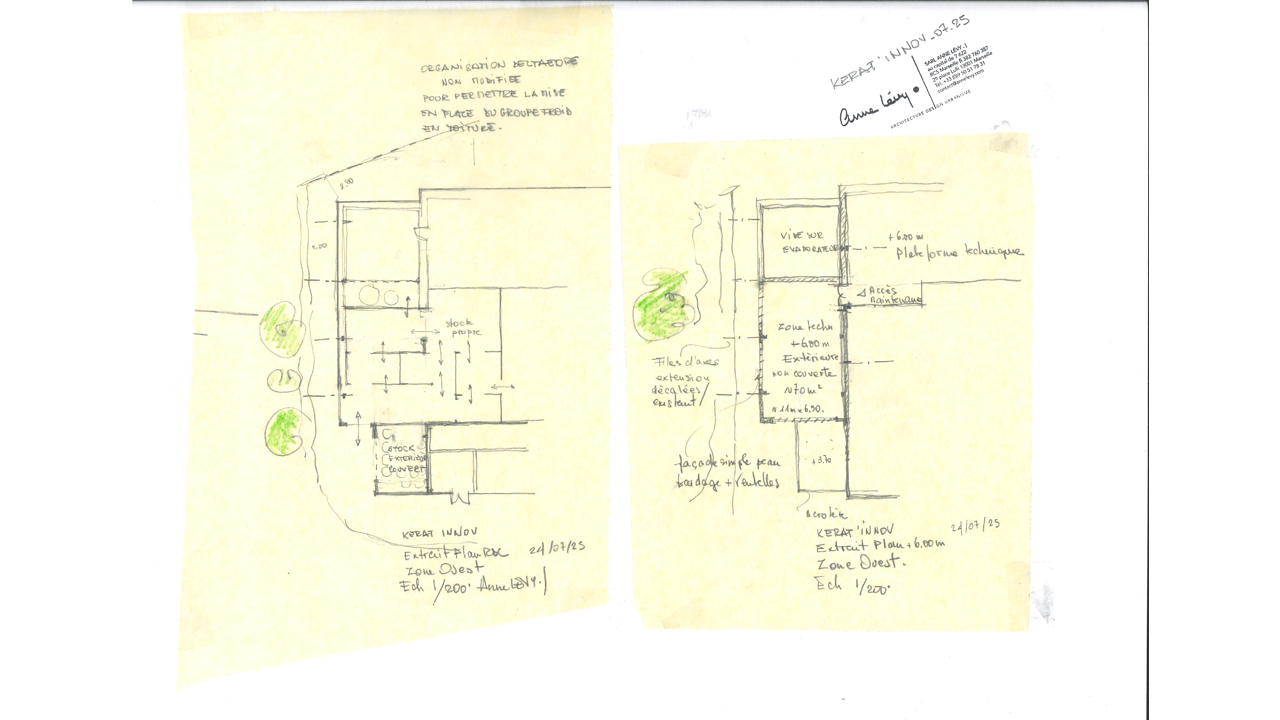 ORGANISATION
NON MODIFIEE
POUR PERMETTRE LA MISE
EN PLACE DU GROUPE FROID
EN TOITURE.
2.80
stock
propre
STOCK
EXTERIEUR
COUVERT
KERAT INNOV
Extrait Plan RDC 24/07/25
Zone Ouest
Ech 1/200° Anne LÉVY.
KERAT'INNOV_07.25
Anne Lévy
SARL ANNE LÉVY
au capital de 7 622
RCS Marseille B 382 760 387
29 place Lulli 13001 Marseille
contact@annelevy.com
ARCHITECTURE DESIGN URBANISME
VIDE SUR
EVAPORATEUR
+6.00 m
Plateforme technique
Accès
Maintenance
Zone techn
+6.00 m
Extérieure
non couverte
~70 m²
~ 11m x 6.50.
Files d'axes
extension
décalées/
existant
façade simple peau
bardage + ventelles
+3.70
Acrotère
KERAT'INNOV 24/07/25
Extrait Plan +6.00 m
Zone Ouest.
Ech 1/200°